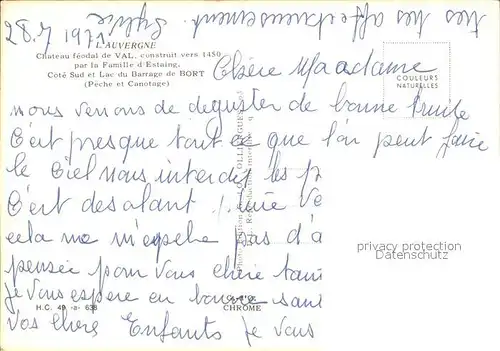 28.7 1971
très très affectueusement. Sylvie
L'AUVERGNE
Château féodal de VAL, construit vers 1450
par la Famille d'Estaing.
Côté Sud et Lac du Barrage de BORT
(Pêche et Canotage)
COULEURS
NATURELLES
Chère Maadame
nous venons de deguster de bonne truite
C'est presque tout ce que l'on peut faire
le Ciel nous interdit les p
C'est desolant
cela ne m'epeche pas d'a
pensée pour Vous chère
Je Vous espère en bonne san
Vos chers Enfants Je Vous
privacy protection
Datenschutz
H.C. 49 -a- 638
CHROME